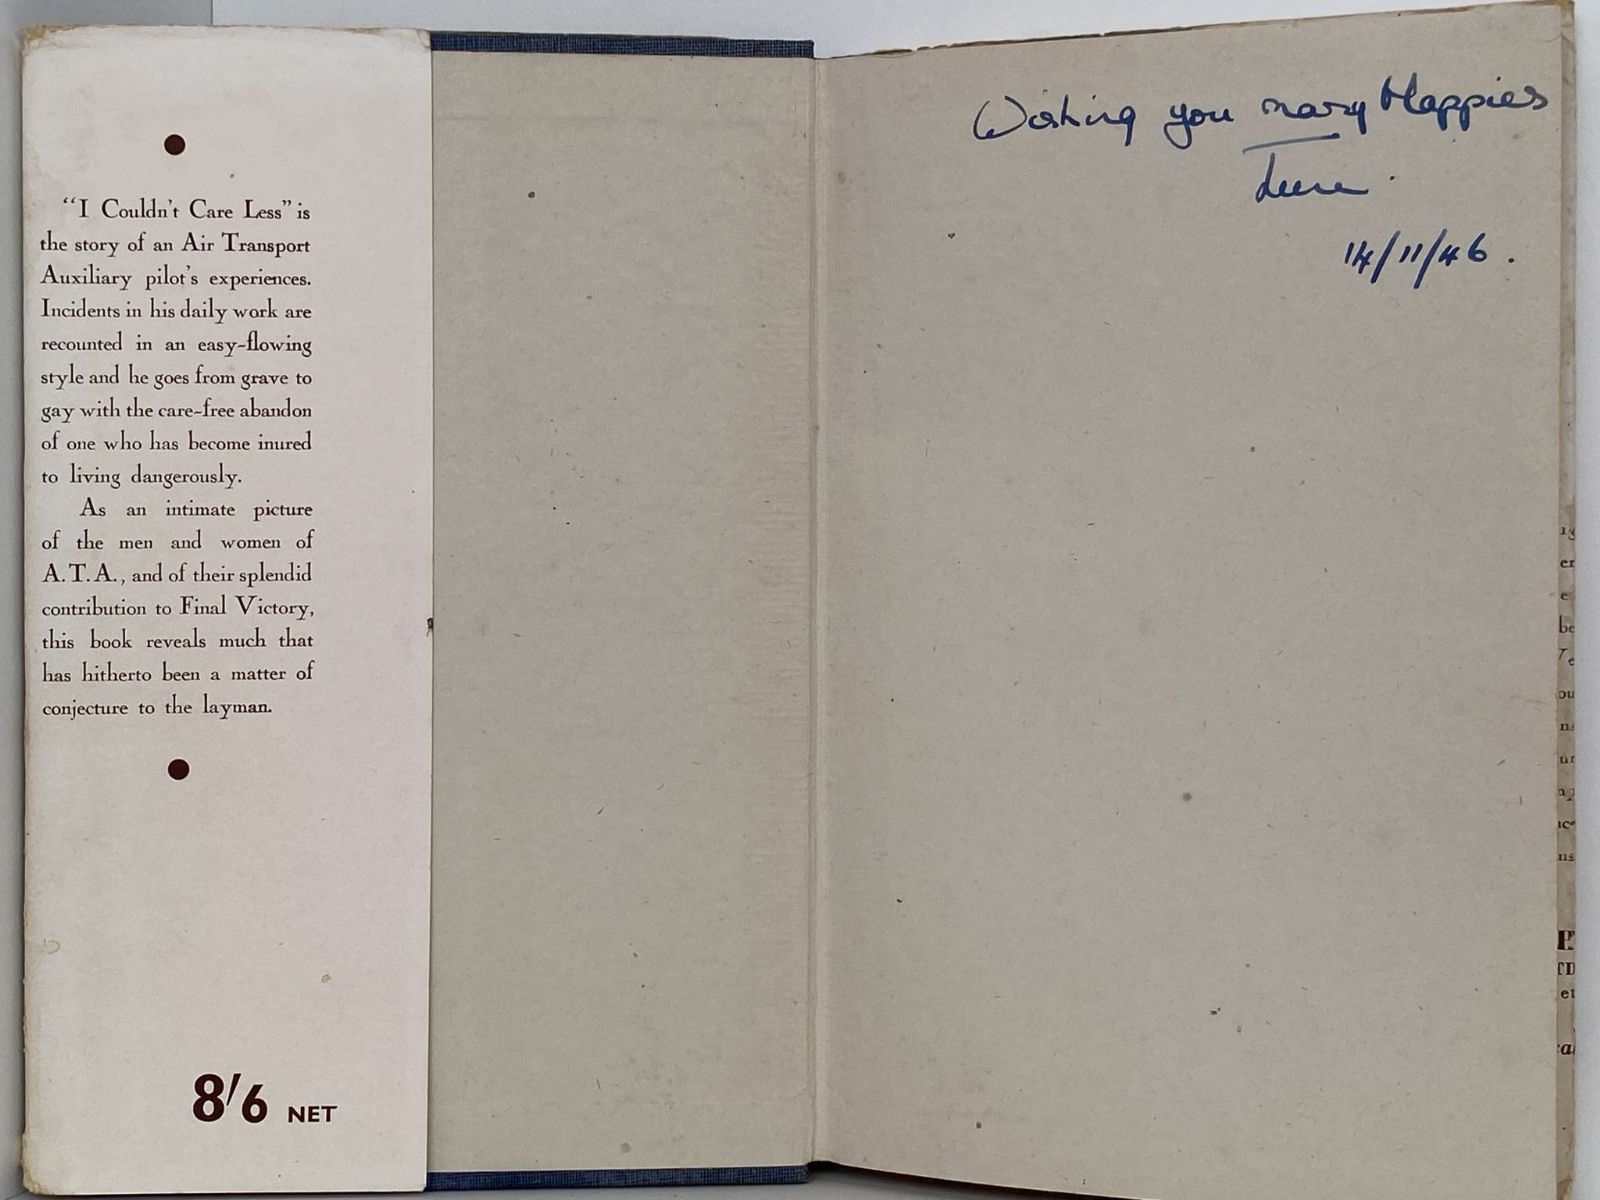 "I Couldn't Care Less" is
the story of an Air Transport
Auxiliary pilot's experiences.
Incidents in his daily work are
recounted in an easy-flowing
style and he goes from grave to
gay with the care-free abandon
of one who has become inured
to living dangerously.
As an intimate picture
of the men and women of
A.T.A., and of their splendid
contribution to Final Victory,
this book reveals much that
has hitherto been a matter of
conjecture to the layman.
8/6 NET
Wishing you many Happies
14/11/46.